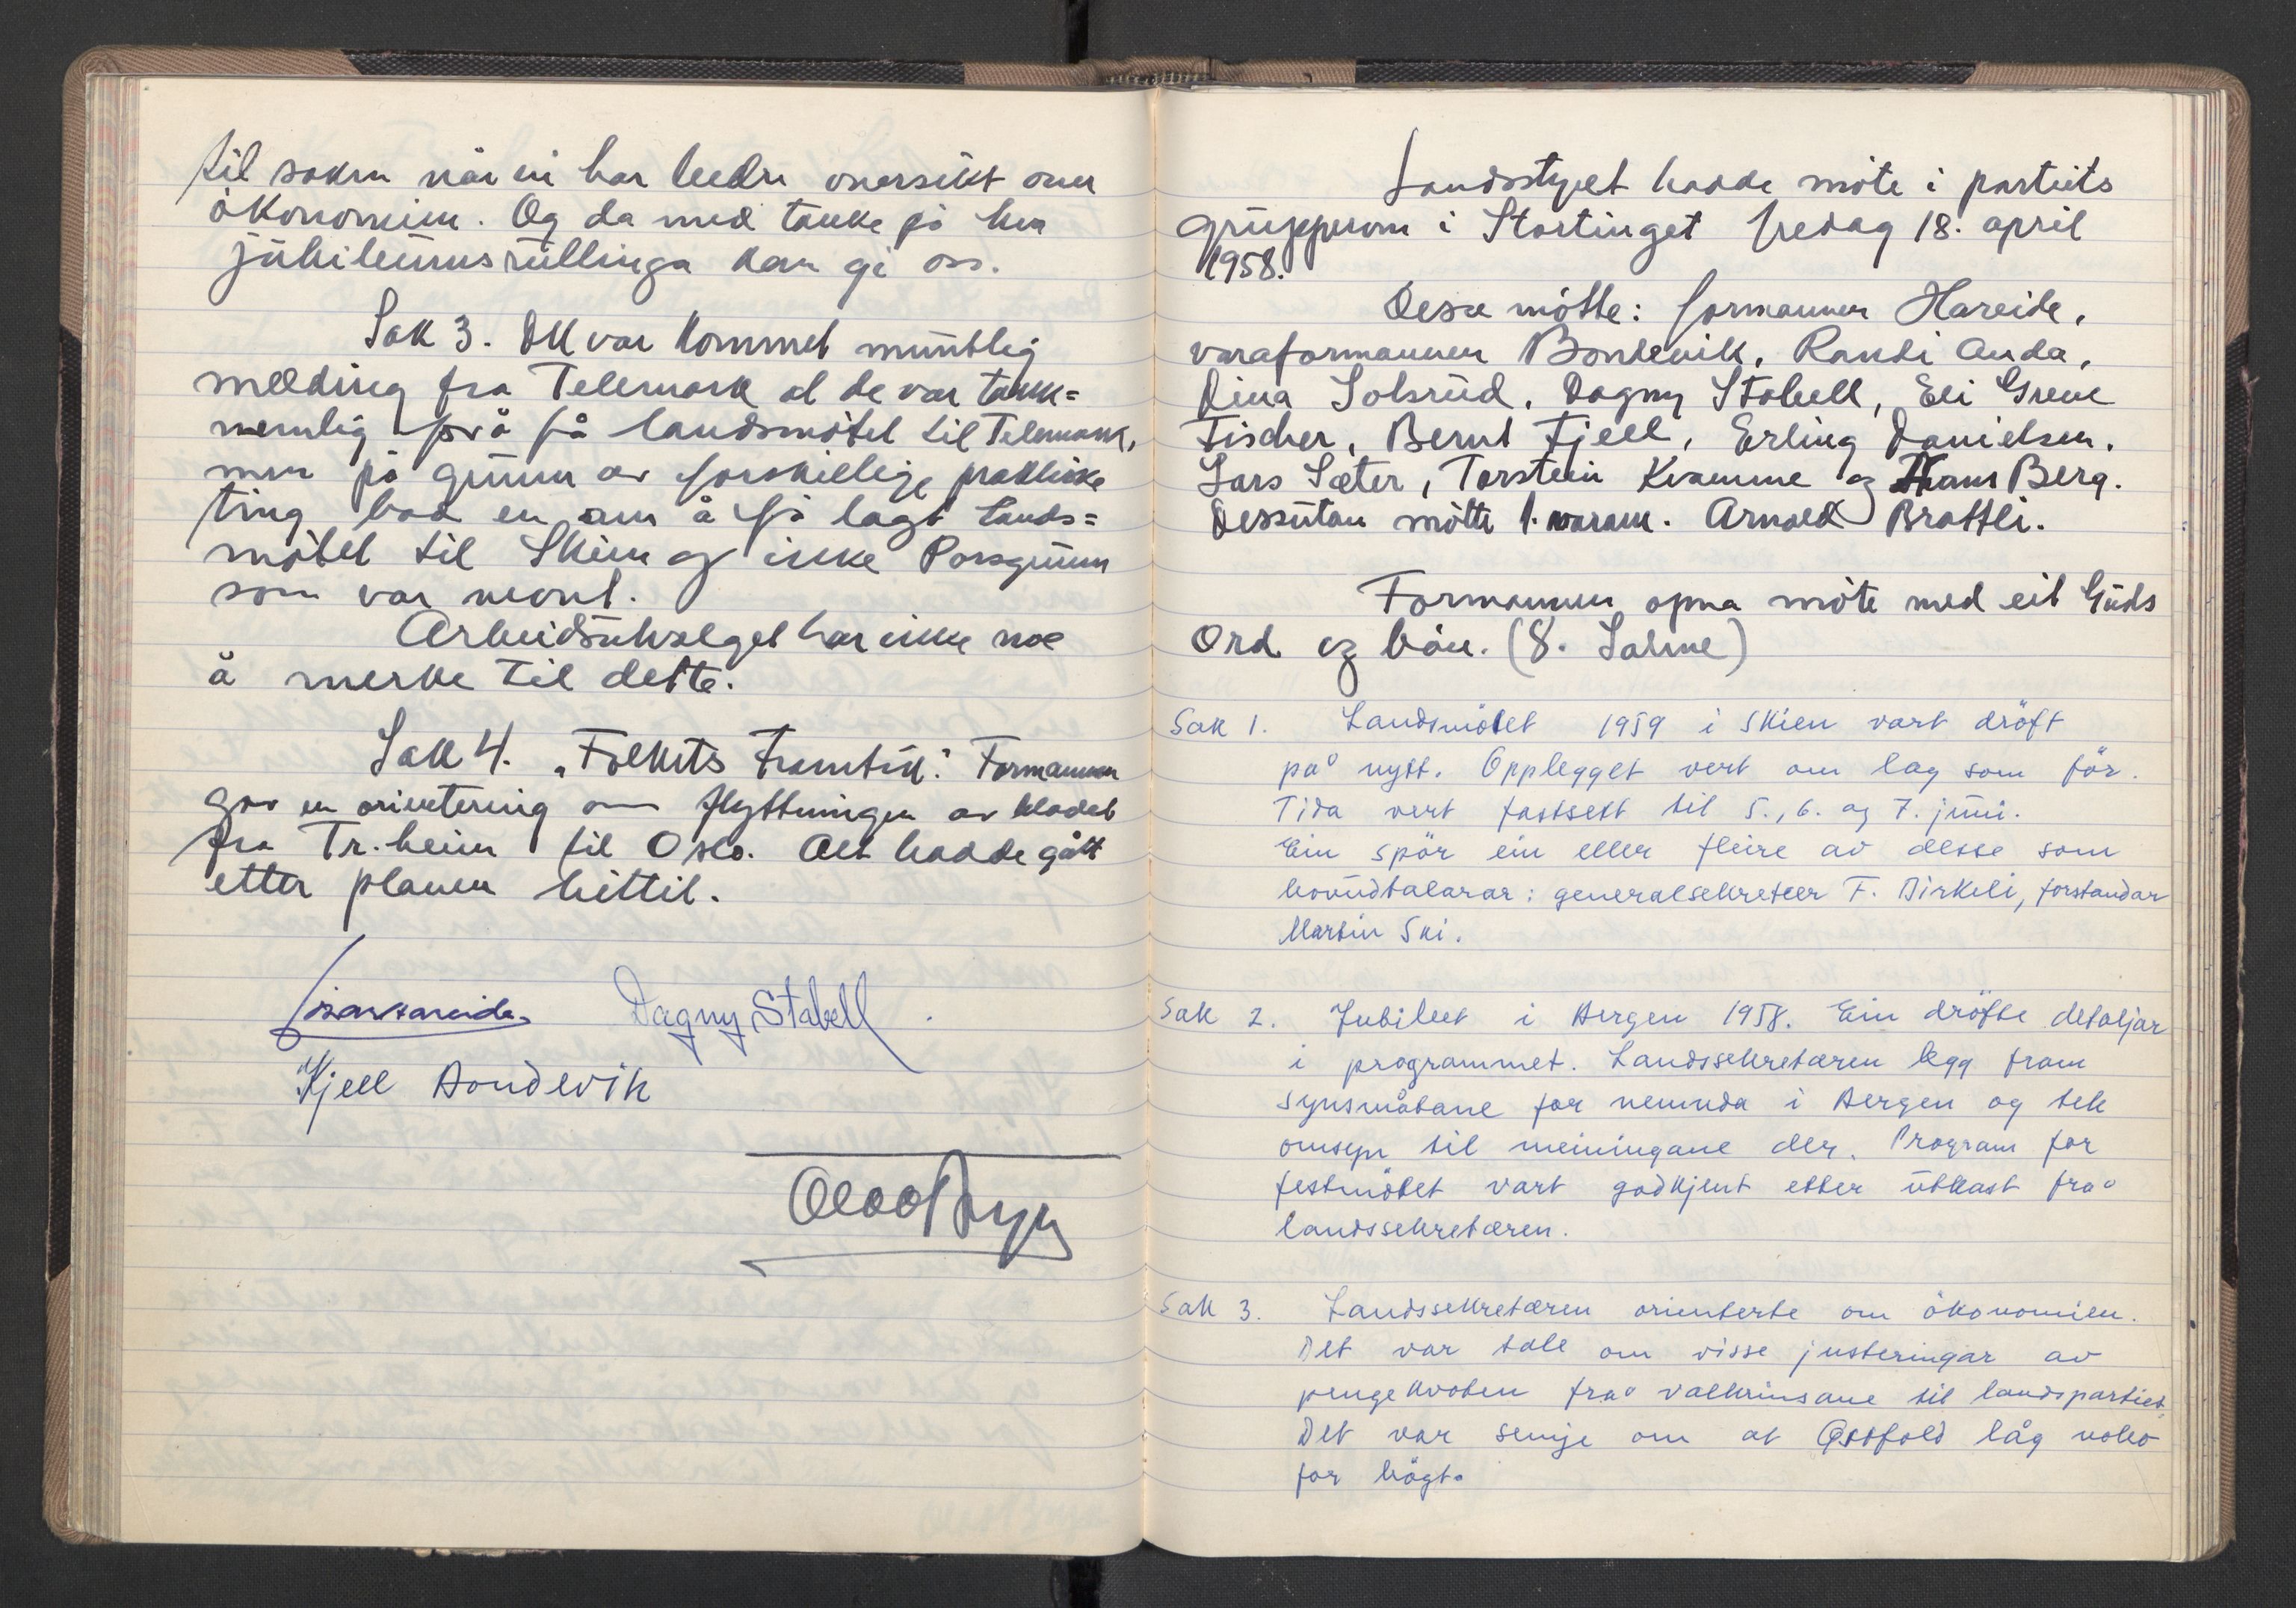 til saken når en har bedre oversikt over
økonomien. Og da med tanke på hva
jubileumsrullinga kan gi oss.
Sak 3. Det var kommet muntlig
melding fra Telemark at de var takk=
nemlig for å få landsmøtet til Telemark,
men på grunn av forskillige praktiske
ting bad en om å få lagt lands=
møtet til Skien og ikke Porsgrunn
som var nevnt.
Arbeidsutvalget har ikke noe
å merke til dette.
Sak 4. "Folkets Framtid". Formannen
gav en orientering om flyttningen av bladet
fra Tr.heim til Oslo. Alt hadde gått
etter planen hittil.
Dagny Stabell
Kjell Bondevik
Olav Bryn
Landsstyret hadde møte i partiets
grupperom i Stortinget fredag 18. april
1958.
Desse møtte: formannen Hareide,
varaformannen Bondevik, Randi Anda,
Dina Solsrud, Dagny Stabell, Eli Greve
Fischer, Bernt Fjell, Erling Danielsen,
Lars Sæter, Torstein Kvamme og Hans Berg.
Dessutan møtte 1. varam. Arnold Brattli.
Formannen opna møte med eit Guds
Ord og bön. (8. Salme)
Sak 1. Landsmötet 1959 i Skien vart dröft
på nytt. Opplegget vert om lag som för.
Tida vert fastsett til 5., 6. og 7. juni.
Ein spör ein eller fleire av desse som
hovudtalarar: generalsekretær F. Birkeli, forstandar
Martin Ski.
Sak 2. Jubileet i Bergen 1958. Ein dröfte detaljar
i programmet. Landssekretæren legg fram
synsmåtane for nemnda i Bergen og tek
omsyn til meiningane der. Program for
festmötet vart godkjent etter utkast frå
landssekretæren.
Sak 3. Landssekretæren orienterte om ökonomien.
Det var tale om visse justeringar av
pengekvoten frå valkrinsane til landspartiet.
Det var semje om at Østfold låg noko
for högt.